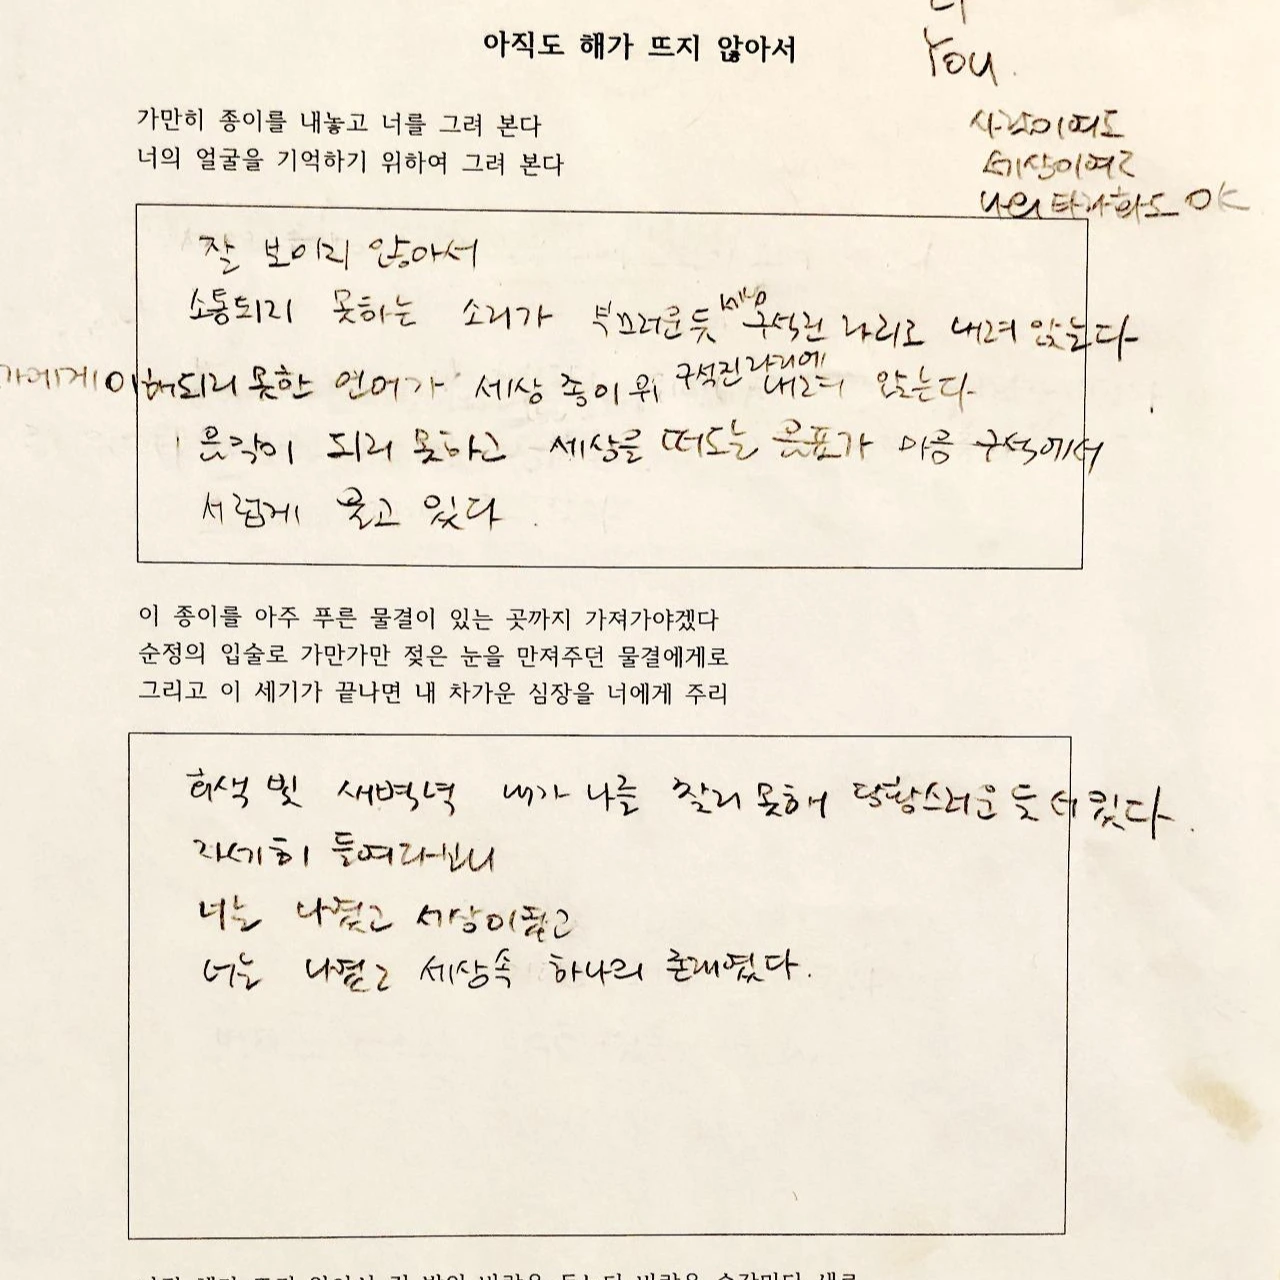 아직도 해가 뜨지 않아서
너
You.
사랑이여도
세상이여도
나의 타자화도 OK
가만히 종이를 내놓고 너를 그려 본다
너의 얼굴을 기억하기 위하여 그려 본다
잘 보이지 않아서
소통되지 못하는 소리가 부끄러운듯 세상 구석진 자리로 내려 앉는다
에게 이해되지 못한 언어가 세상 종이 위 구석진 자리에 내려 앉는다
음악이 되지 못하고 세상을 떠도는 음표가 마음 구석에서
서럽게 울고 있다.
이 종이를 아주 푸른 물결이 있는 곳까지 가져가야겠다
순정의 입술로 가만가만 젖은 눈을 만져주던 물결에게로
그리고 이 세기가 끝나면 내 차가운 심장을 너에게 주리
회색 빛 새벽녘 내가 나를 찾지 못해 당황스러운 듯 서 있다.
자세히 들여다보니
너는 나였고 세상이였고
너는 나였고 세상속 하나의 존재였다.